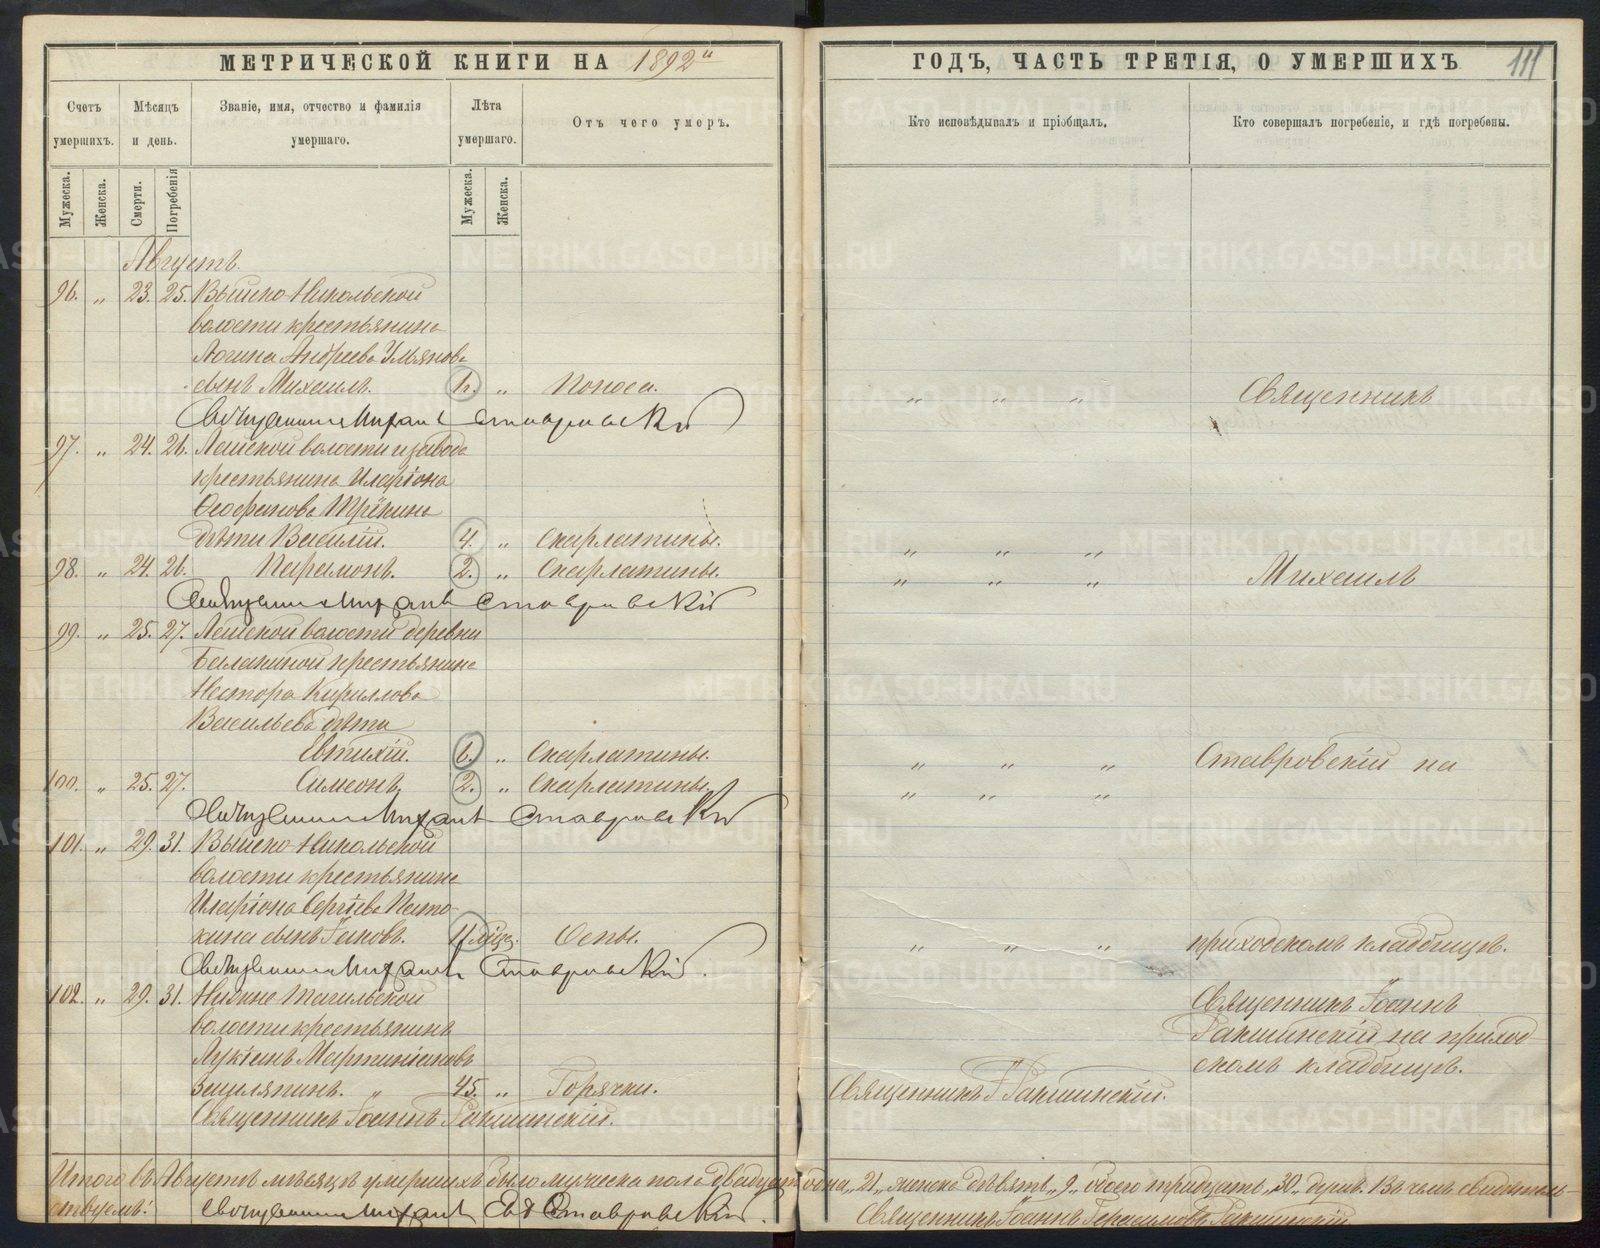 МЕТРИЧЕСКОЙ КНИГИ НА 1892й
ГОДЪ, ЧАСТЬ ТРЕТІЯ, О УМЕРШИХЪ
111
Счетъ умершихъ.
Мѣсяцъ и день.
Званіе, имя, отчество и фамилія умершаго.
Лѣта умершаго.
Отъ чего умеръ.
Кто исповѣдывалъ и пріобщалъ.
Кто совершалъ погребеніе, и гдѣ погребены.
Мужеска. Женска. Смерти. Погребенія Мужеска. Женска.
Августъ.
96. „ 23. 25. Выйско-Никольской
волости крестьянина
Логина Андреева Ульянова
сынъ Михаилъ. „ Поноса. „ „ „ Священникъ
Священникъ Михаилъ Ставровскій
97. „ 24. 26. Лайской волости и завода
крестьянина Иларіона
Ѳеофанова
дѣти Василій. 4. „ Скарлатины. „ „ „
98. „ 24. 26. Парамонъ. 2. „ Скарлатины. „ „ „ Михаилъ
Священникъ Михаилъ Ставровскій
99. „ 25. 27. Лайской волости деревни
Балакиной крестьянина
Нестора Кириллова
Васильева дѣти
Евтихій. „ Скарлатины. „ „ „ Ставровскій на
100. „ 25. 27. Симеонъ. 2. „ Скарлатины. „ „ „
Священникъ Михаилъ Ставровскій
101. „ 29. 31. Выйско-Никольской
волости крестьянина
Иларіона Сергіева
сынъ Іаковъ. Оспы. „ „ „ приходскомъ кладбищѣ.
Священникъ Михаилъ Ставровскій.
102. „ 29. 31. Нижне-Тагильской
волости крестьянинъ
Лукіанъ Мартиніановъ
„ 45. „ Горячки.
Священникъ І
Священникъ Іоаннъ
Священникъ Іоаннъ
на приход-
скомъ кладбищѣ.
Итого въ Августѣ мѣсяцѣ умершихъ было мужеска пола двадцать одна „21„ женска девять „9„ обоего тридцать „30„ душъ. Въ чемъ свидѣтель-
ствуемъ: Священникъ Михаилъ Ставровскій.
Священникъ Іоаннъ Герасимовъ
METRIKI.GASO-URAL.RU